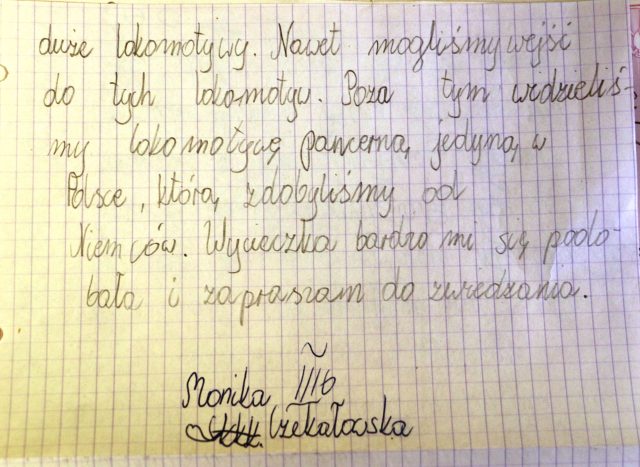 duże lokomotywy. Nawet mogliśmy wejść
do tych lokomotyw. Poza tym widzieliś-
my lokomotywę pancerną, jedyną w
Polsce, którą zdobyliśmy od
Niemców. Wycieczka bardzo mi się podo-
bała i zapraszam do zwiedzania.
Monika
Czekałowska